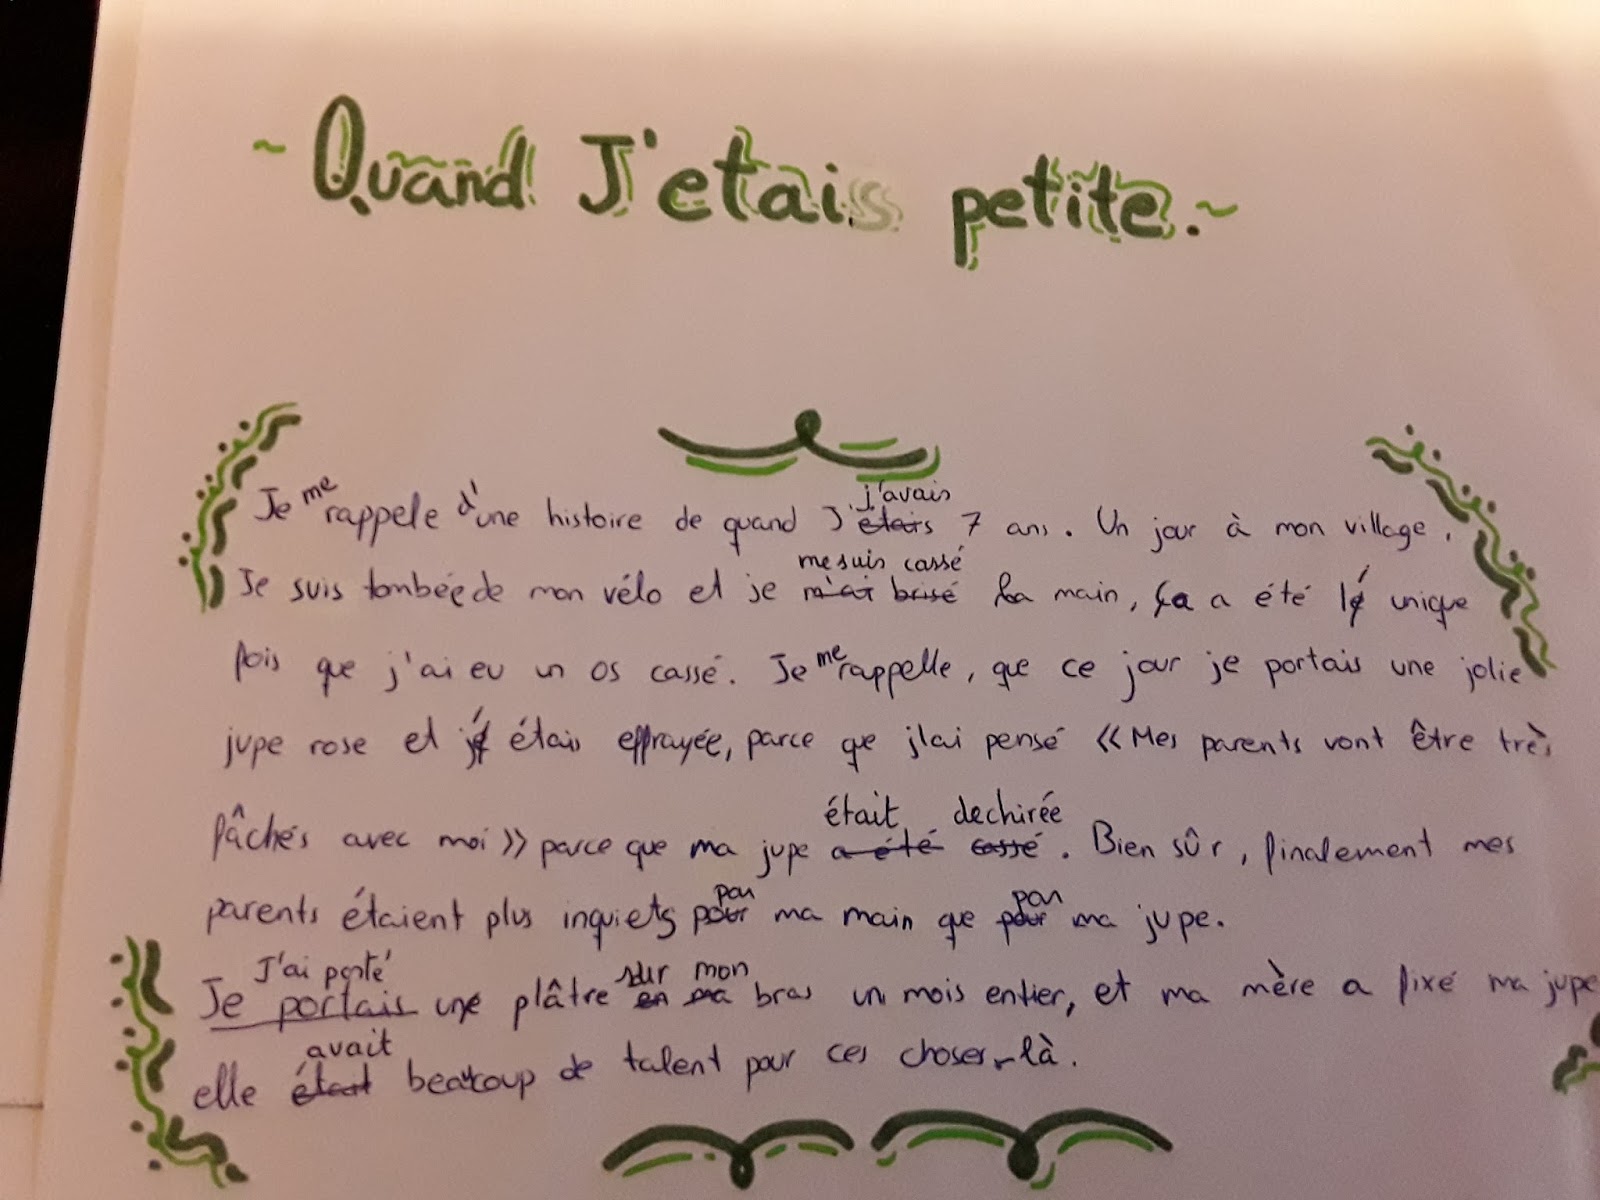 ~ Quand J'etais petite. ~
Je me rappele d'une histoire de quand J' j'avais etais 7 ans. Un jour à mon village,
Je suis tombée de mon vélo et je me suis cassé m'ai brisé la main, ça a été lé unique
fois que j'ai eu un os cassé. Je me rappelle, que ce jour je portais une jolie
jupe rose et j'é étais effrayée, parce que j'ai pensé «Mes parents vont être très
fâchés avec moi» parce que ma jupe était dechirée a été cassé. Bien sûr, finalement mes
parents étaient plus inquiets par pour ma main que par pour ma jupe.
J'ai porté Je portais une plâtre sur mon en ma bras un mois entier, et ma mère a fixé ma jupe
elle avait était beaucoup de talent pour ces choses-là.